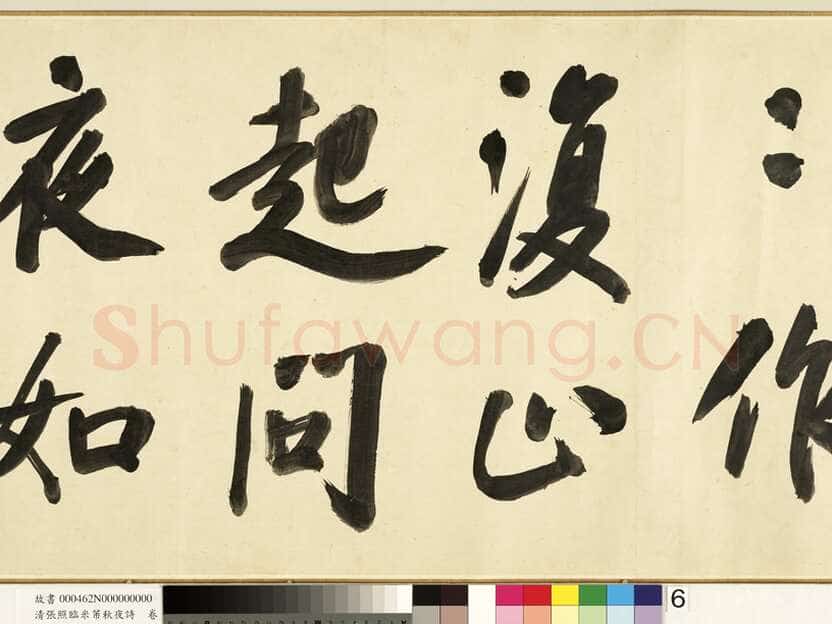 〻作
復止
起問
夜如
Shufawang.CN
故書 000462N000000000
清張照臨米芾秋夜詩 卷
6